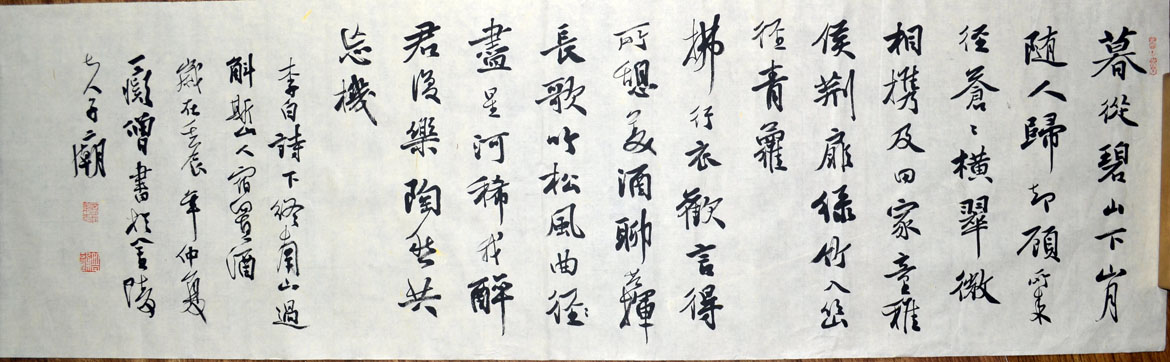 暮從碧山下山月
随人歸却顧所来
径蒼〻横翠微
相携及田家童稚
侯荆扉绿竹入幽
径青蘿
拂行衣歡言得
所憩美酒聊共揮
長歌吟松風曲径〻
盡星河稀我醉
君復樂陶然共
忘機
李白詩下終南山過
斛斯山人宿置酒
歲在壬辰年仲夏
僧書於金陵
夫子廟